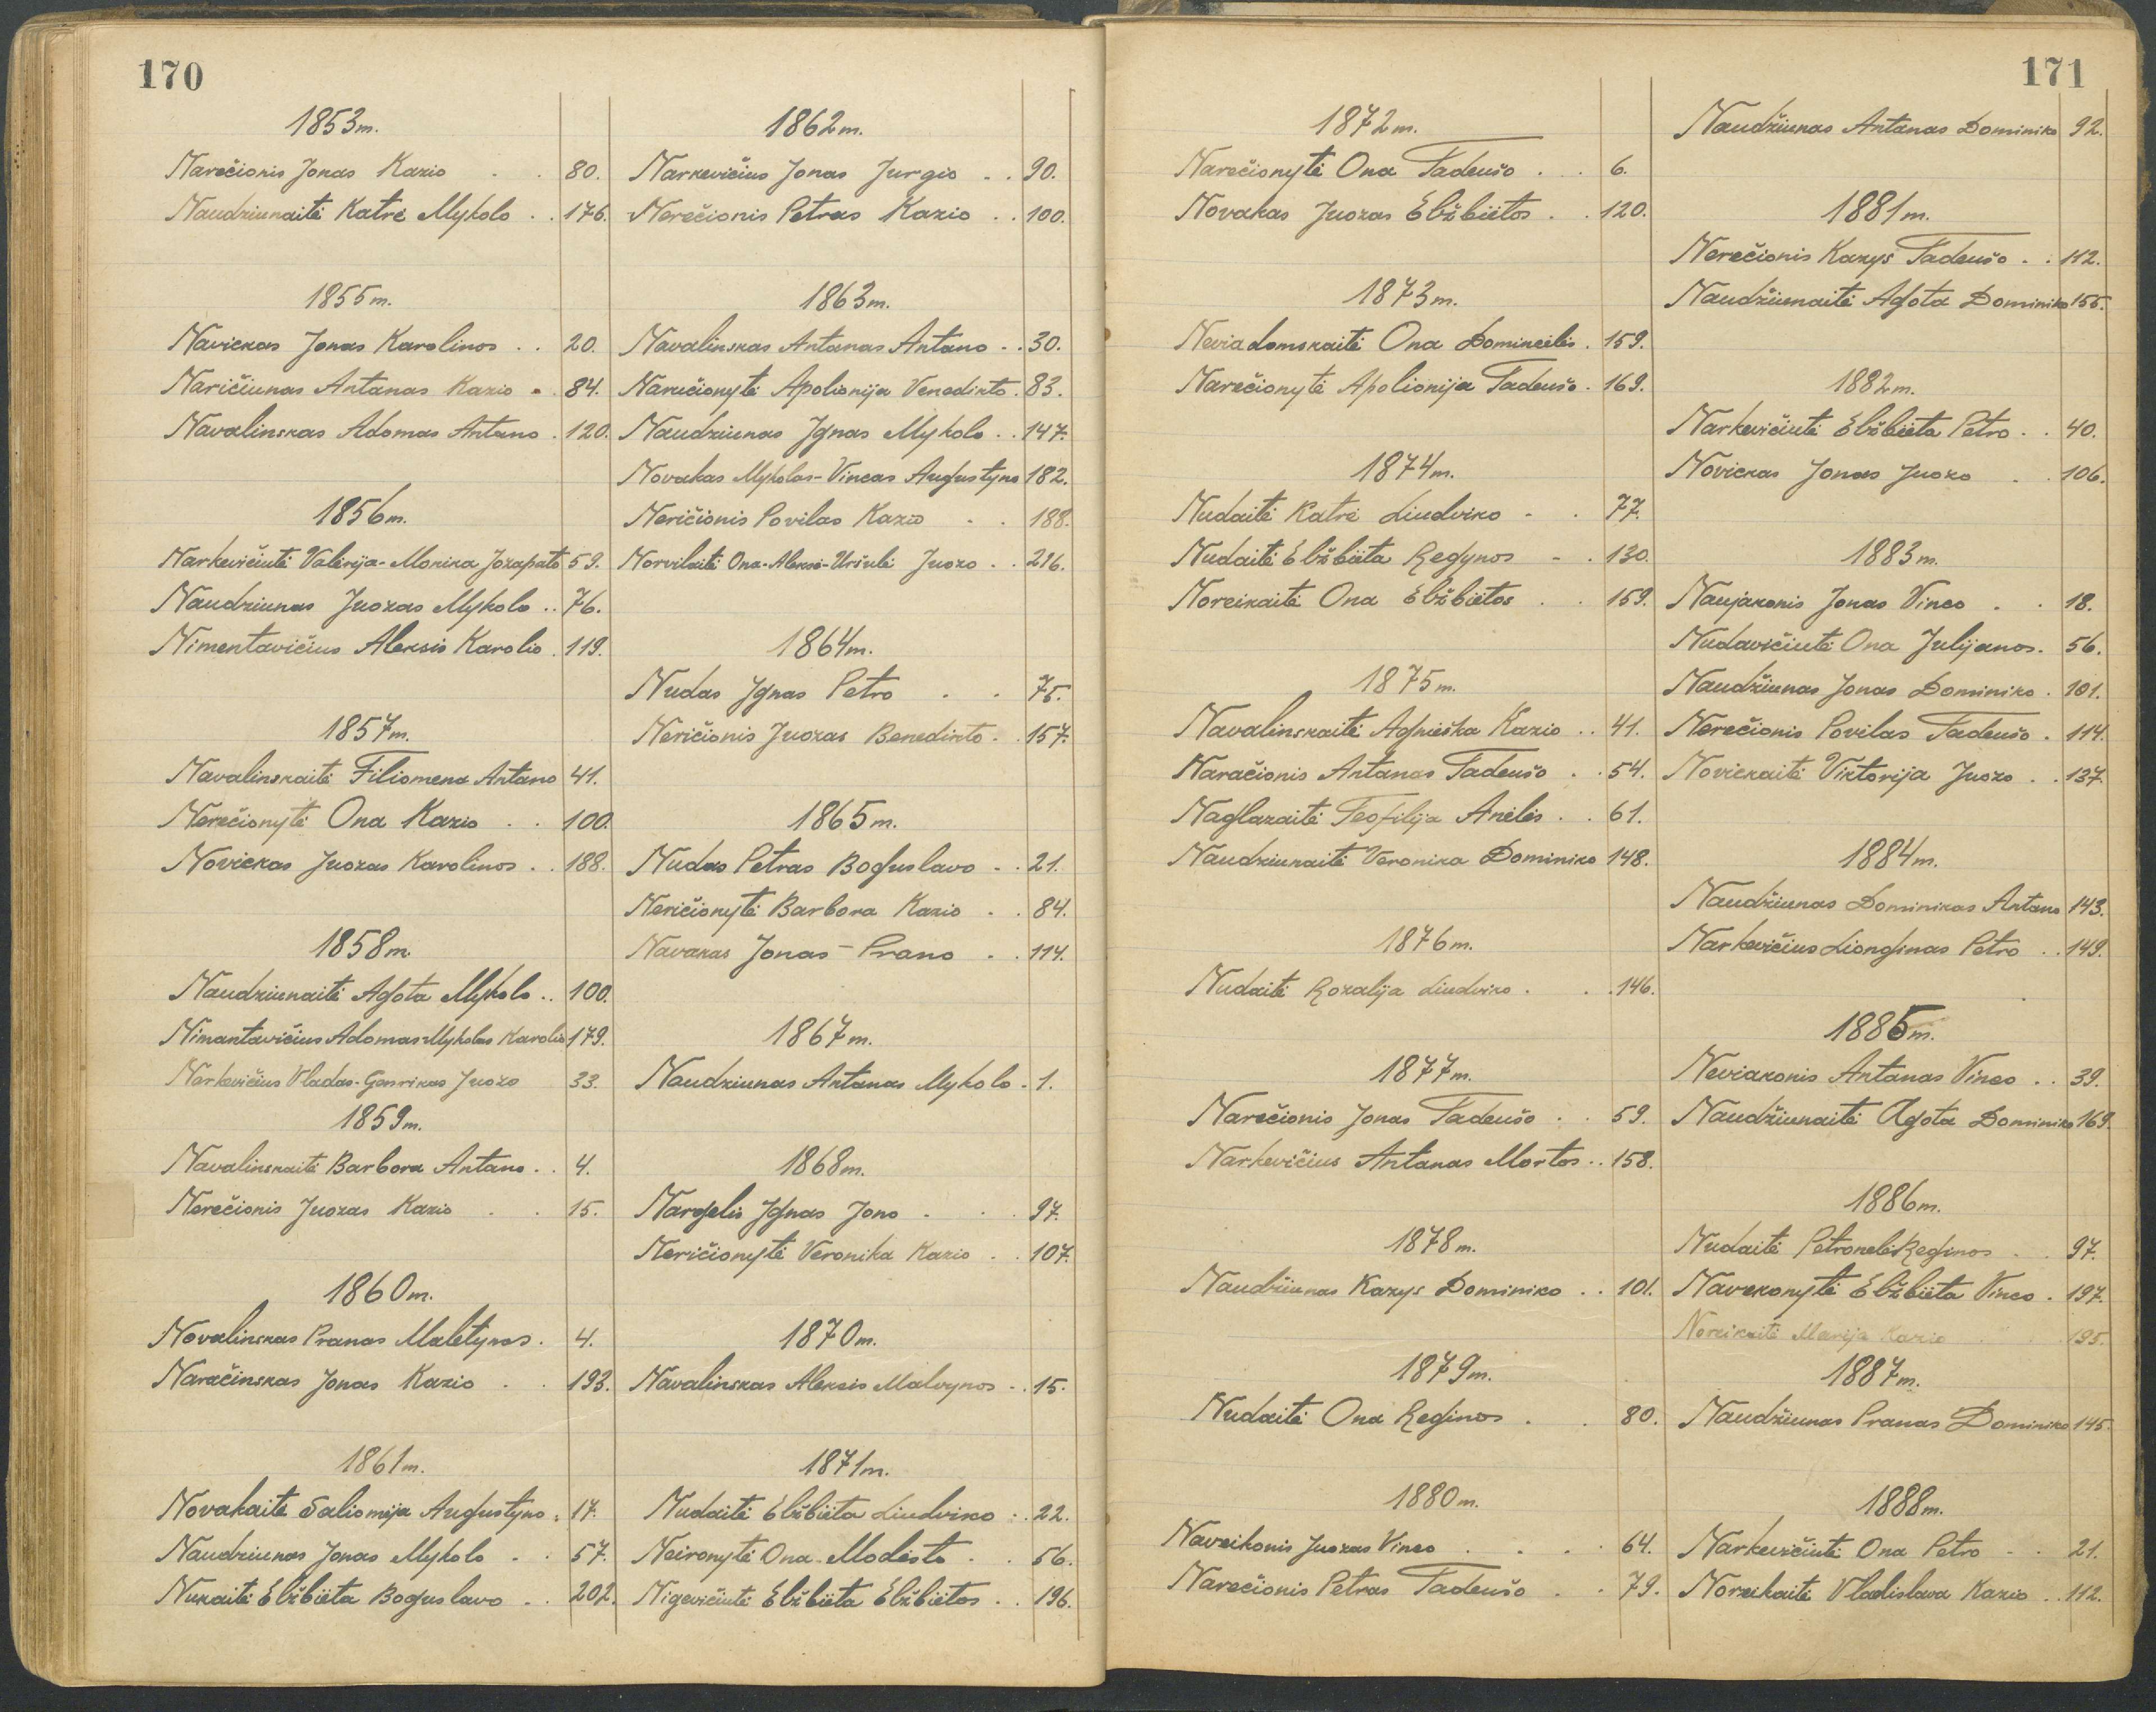 170
1853m.
Narečionis Jonas Kazio . . 80.
Naudziunaitė Katrė Mykolo . . 176.
1855m.
Navickas Jonas Karolinos . . 20.
Naričiunas Antanas Kazio . . 84.
Navalinskas Adomas Antano . 120.
1856m.
Narkevičiutė Valerija-Monika Jozapato 59.
Naudziunas Juozas Mykolo . . 76.
Nimentavičius Aleksis Karolio . 119.
1857m.
Navalinskaitė Filiomena Antano 41.
Nerečionytė Ona Kazio . . 100.
Novickas Juozas Karolinos . . 188.
1858m.
Naudziunaitė Agota Mykolo . . 100.
Nimantavičius Adomas-Mykolas Karolio 179.
Narkevičius Vladas-Genrikas Juozo 33.
1859m.
Navalinskaitė Barbora Antano . . 4.
Nerečionis Juozas Kazio . . 15.
1860m.
Novalinskas Pranas Maletynos . 4.
Naračinskas Jonas Kazio . . 193.
1861m.
Novakaitė Saliomija Augustyno . 17.
Naudziunas Jonas Mykolo . . 57.
Nukaitė Elžbieta Boguslavo . . 202.
1862m.
Narkevičius Jonas Jurgio . . 90.
Nerečionis Petras Kazio . . 100.
1863m.
Navalinskas Antanas Antano . . 30.
Naručionytė Apolionija Venedikto . 83.
Naudziunas Ignas Mykolo . . 147.
Novakas Mykolas-Vincas Augustyno 182.
Neričionis Povilas Kazio . . 188.
Norvilaitė Ona-Aleksė-Uršulė Juozo . . 216.
1864m.
Nudas Ignas Petro . . 75.
Neričionis Juozas Benedikto . . 157.
1865m.
Nudas Petras Boguslavo . . 21.
Neričionytė Barbora Kazio . . 84.
Navakas Jonas - Prano . . 114.
1867m.
Naudziunas Antanas Mykolo . 1.
1868m.
Nargelis Ignas Jono . . . 97.
Neričionytė Veronika Kazio . . 107.
1870m.
Navalinskas Aleksis Malvynos . . 15.
1871m.
Nudaitė Elžbieta Liudviko . . 22.
Neironytė Ona-Modesto . . 56.
Nigevičiutė Elžbieta Elžbietos . . 196.
171
1872m.
Narečionytė Ona Tadeušo . . 6.
Novakas Juozas Elžbietos . . 120.
1873m.
Neviadomskaitė Ona Domincėlės . 159.
Narečionytė Apolionija Tadeušo . 169.
1874m.
Nudaitė Katrė Liudviko . . 77.
Nudaitė Elžbieta Regynos . . 130.
Noreikaitė Ona Elžbietos . . 159.
1875m.
Navalinskaitė Agnieška Kazio . . 41.
Naračionis Antanas Tadeušo . . 54.
Naglazaitė Teofilija Anėlės . . 61.
Naudziunaitė Veronika Dominiko 148.
1876m.
Nudaitė Rozalija Liudviko . . . 146.
1877m.
Narečionis Jonas Tadeušo . . 59.
Narkevičius Antanas Mortos . . 158.
1878m.
Naudžiunas Kazys Dominiko . . 101.
1879m.
Nudaitė Ona Reginos . . 80.
1880m.
Naveikonis Juozas Vinco . . . . 64.
Narečionis Petras Tadeušo . . 79.
Naudžiunas Antanas Dominiko 92.
1881m.
Nerečionis Kazys Tadeušo . . 112.
Naudžiunaitė Agota Dominiko 155.
1882m.
Narkevičiutė Elžbieta Petro . . 40.
Novickas Jonas Juozo . . 106.
1883m.
Naujakonis Jonas Vinco . . 18.
Nudavičiutė Ona Julijanos . 56.
Naudžiunas Jonas Dominiko . 101.
Nerečionis Povilas Tadeušo . 114.
Novickaitė Viktorija Juozo . . 137.
1884m.
Naudžiunas Dominikas Antano 143.
Narkevičius Lionginas Petro . . 149.
1885m.
Neviakonis Antanas Vinco . . 39.
Naudžiunaitė Agota Dominiko 169.
1886m.
Nudaitė Petronelė Reginos . . 97.
Navekonytė Elžbieta Vinco . 197.
Noreikaitė Marija Kazio . . 195.
1887m.
Naudžiunas Pranas Dominiko 145.
1888m.
Narkevičiutė Ona Petro . . 21.
Noreikaitė Vladislava Kazio . . 112.